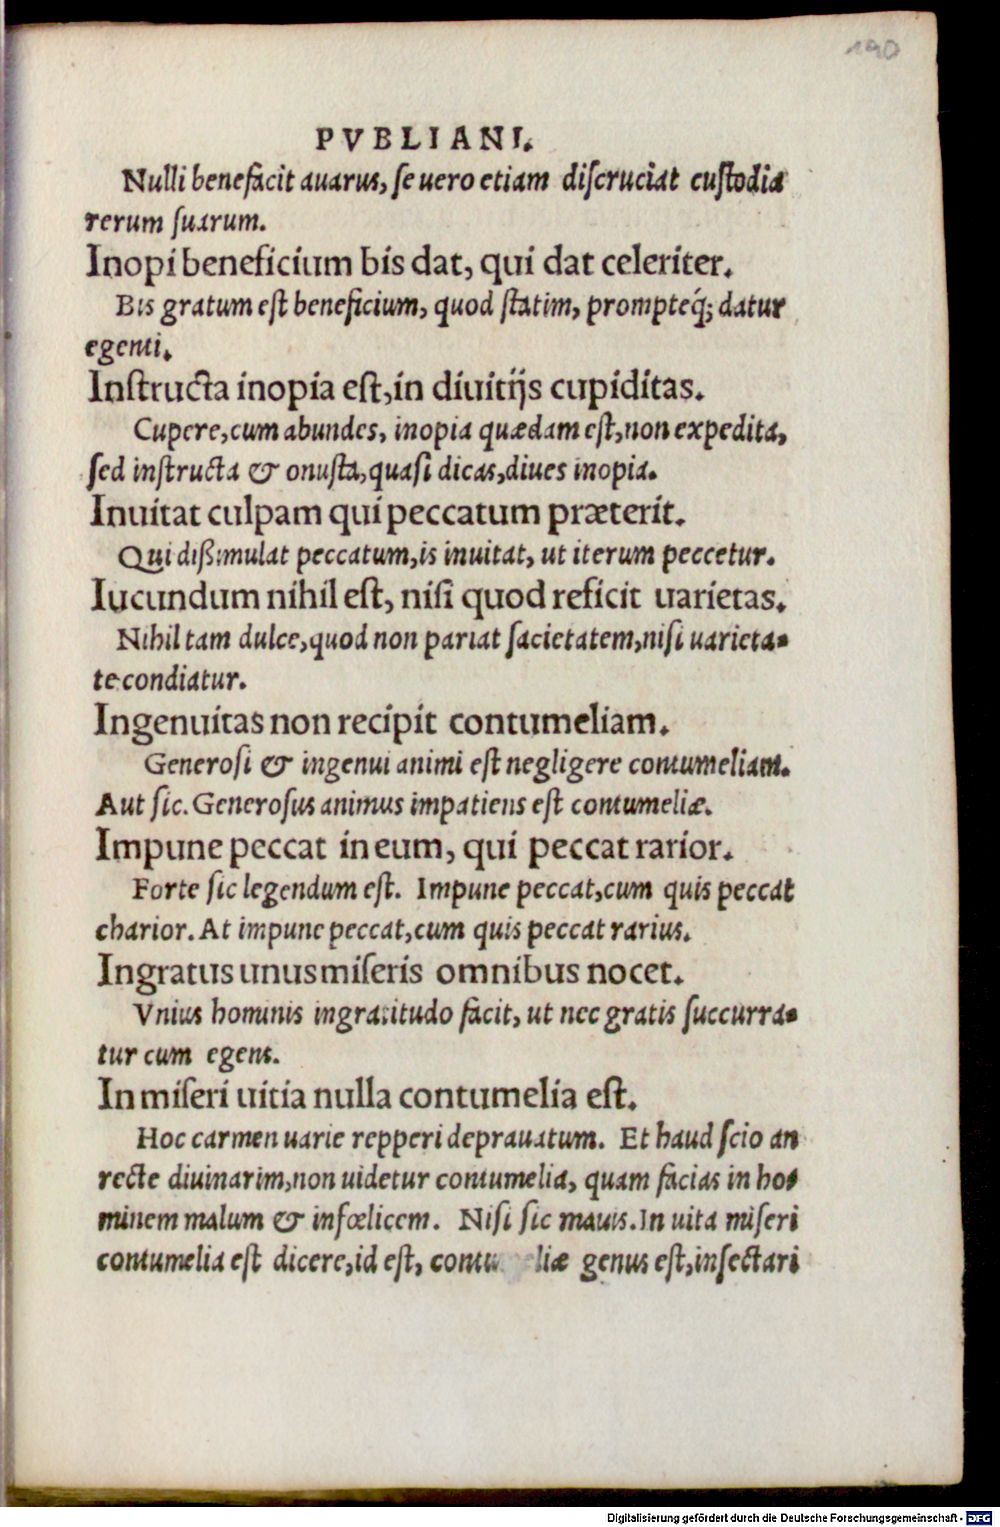 190
PVBLIANI.
Nulli benefacit auarus, se uero etiam discruciat custodia
rerum suarum.
Inopi beneficium bis dat, qui dat celeriter.
Bis gratum est beneficium, quod statim, prompteq́; datur
egenti.
Instructa inopia est, in diuitijs cupiditas.
Cupere, cum abundes, inopia quædam est, non expedita,
sed instructa & onusta, quasi dicas, diues inopia.
Inuitat culpam qui peccatum præterit.
Qui dißimulat peccatum, is inuitat, ut iterum peccetur.
Iucundum nihil est, nisi quod reficit uarietas.
Nihil tam dulce, quod non pariat sacietatem, nisi uarieta-
te condiatur.
Ingenuitas non recipit contumeliam.
Generosi & ingenui animi est negligere contumeliam.
Aut sic. Generosus animus impatiens est contumeliæ.
Impune peccat in eum, qui peccat rarior.
Forte sic legendum est. Impune peccat, cum quis peccat
charior. At impune peccat, cum quis peccat rarius.
Ingratus unus miseris omnibus nocet.
Vnius hominis ingratitudo facit, ut nec gratis succurra-
tur cum egent.
In miseri uitia nulla contumelia est.
Hoc carmen uarie repperi deprauatum. Et haud scio an
recte diuinarim, non uidetur contumelia, quam facias in ho-
minem malum & infœlicem. Nisi sic mauis. In uita miseri
contumelia est dicere, id est, contu liæ genus est, insectari
Digitalisierung gefördert durch die Deutsche Forschungsgemeinschaft - DFG